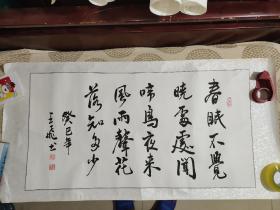 春眠不覺
曉處處聞
啼鳥夜来
風雨聲花
落知多少
癸巳年
王飛书